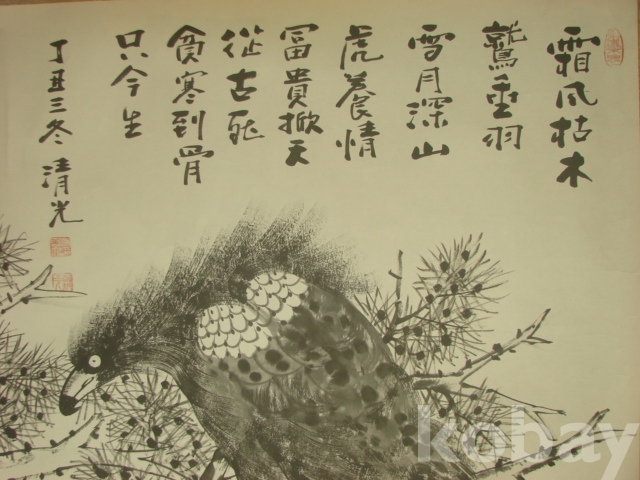 霜風枯木
鷲垂羽
雪月深山
虎養情
富貴掀天
從古死
貪寒到骨
只今生
丁丑三冬 清光
kobay